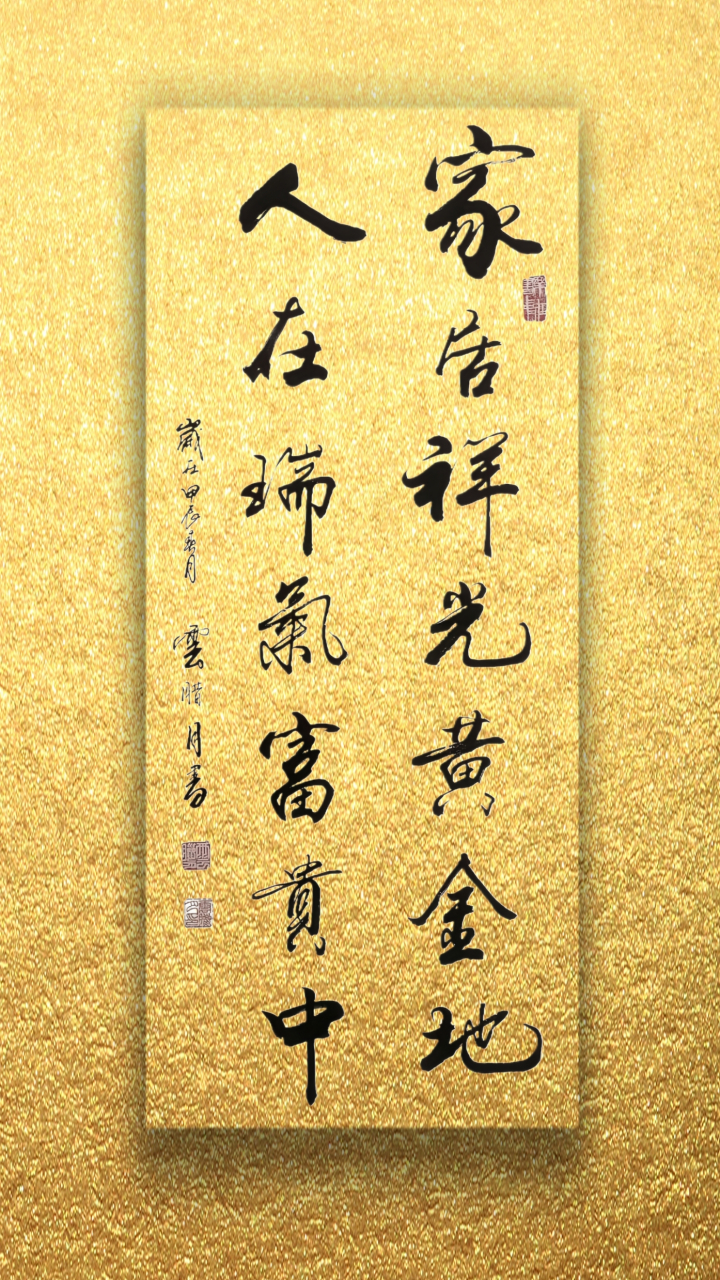 家居祥光黃金地
人在瑞氣富貴中
歲在甲辰春月
雲腊月書